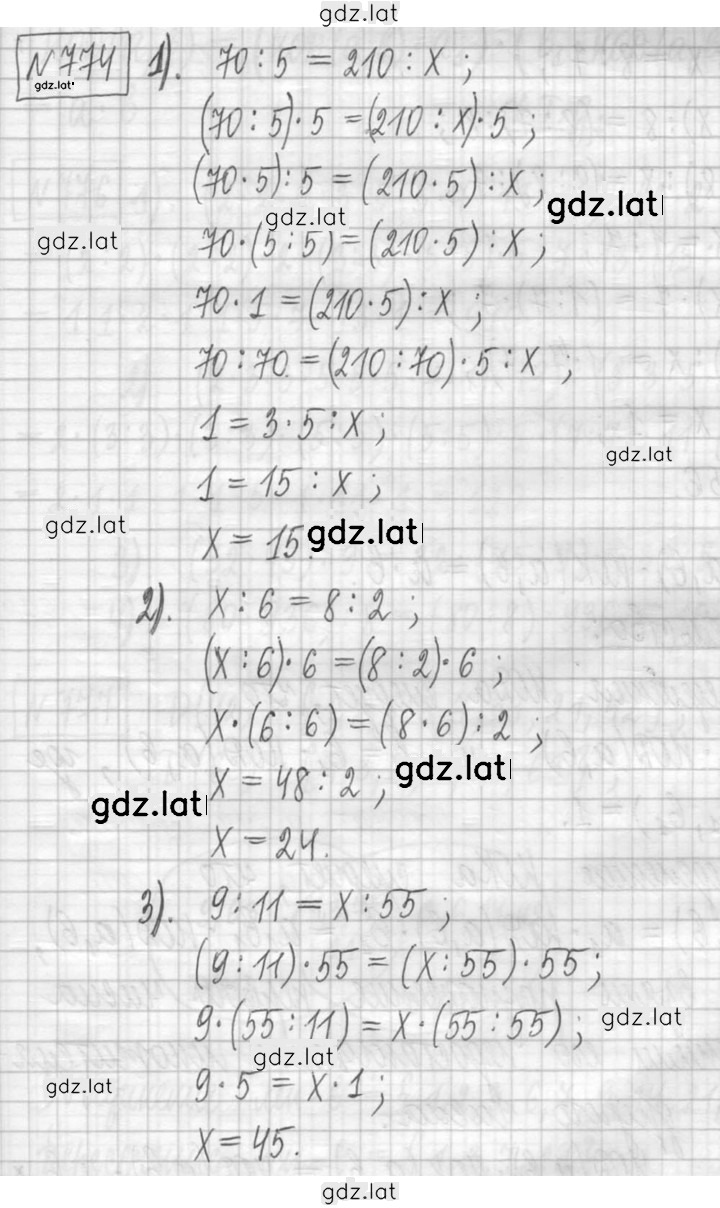 gdz.lat
№774 1). 70 : 5 = 210 : x ;
gdz.lat
(70 : 5) · 5 = (210 : x) · 5 ;
(70 · 5) : 5 = (210 · 5) : x ;
gdz.lat
gdz.lat
gdz.lat
70 · (5 : 5) = (210 · 5) : x ;
70 · 1 = (210 · 5) : x ;
70 : 70 = (210 : 70) · 5 : x ;
1 = 3 · 5 : x ;
gdz.lat
1 = 15 : x ;
gdz.lat
x = 15.
gdz.lat
2). x : 6 = 8 : 2 ;
(x : 6) · 6 = (8 : 2) · 6 ;
x · (6 : 6) = (8 · 6) : 2 ;
x = 48 : 2 ;
gdz.lat
gdz.lat
x = 24.
3). 9 : 11 = x : 55 ;
(9 : 11) · 55 = (x : 55) · 55 ;
9 · (55 : 11) = x · (55 : 55) ;
gdz.lat
gdz.lat
9 · 5 = x · 1 ;
gdz.lat
x = 45.
gdz.lat